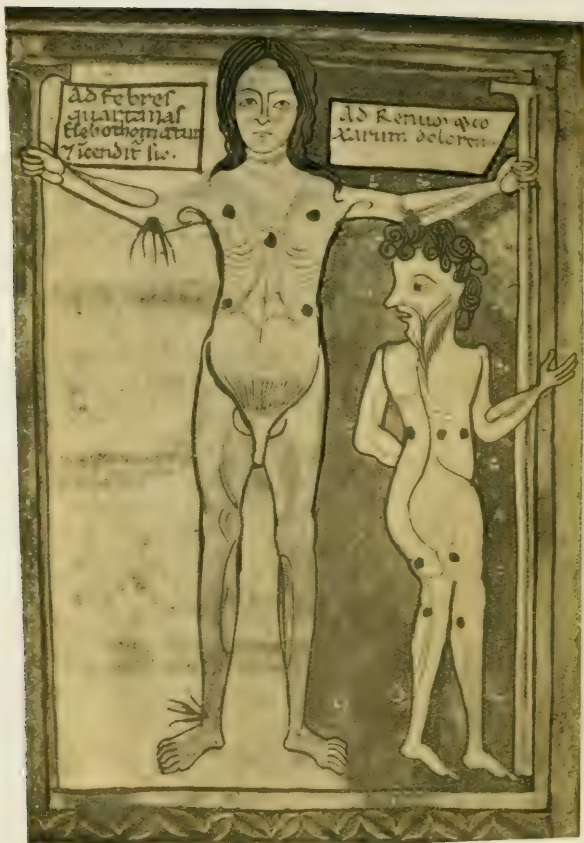 Ad febres
quartanas
flebothomatur
⁊ icendit̄ sic.
Ad Renum ⁊ co
xarum dolorem